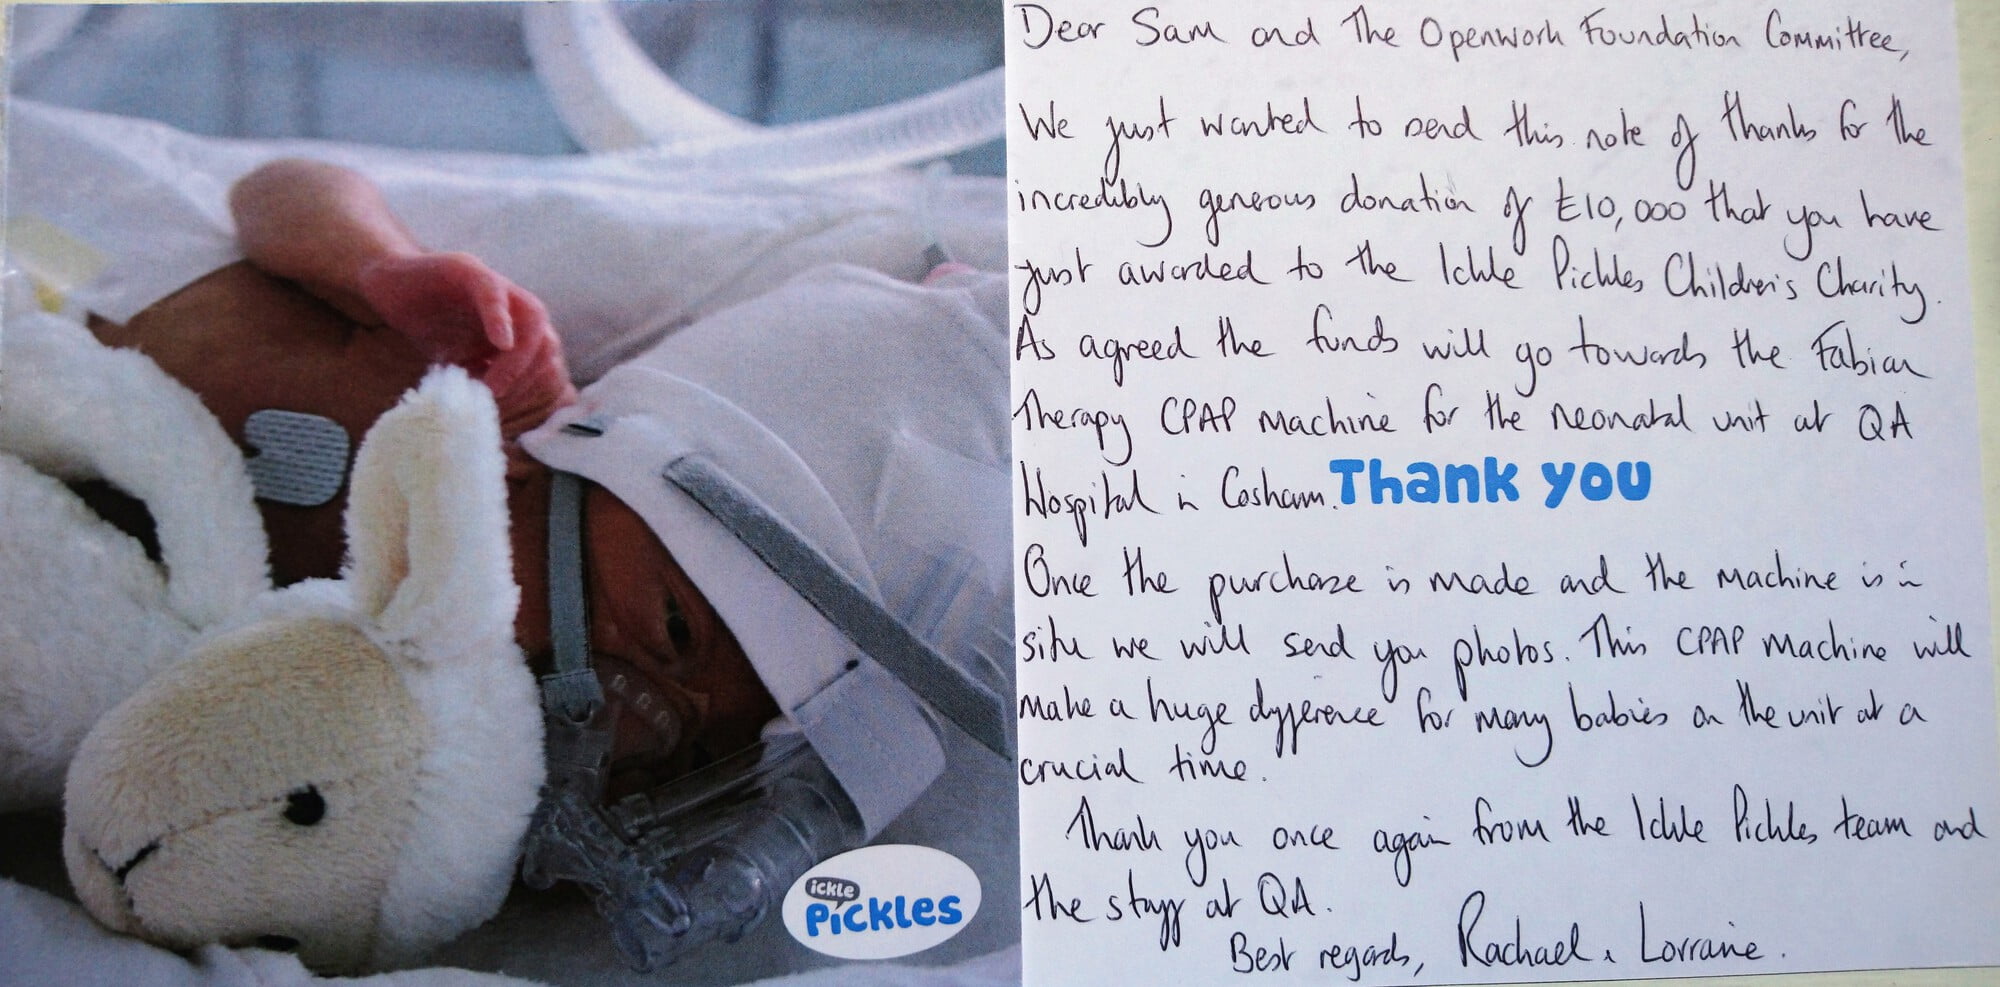 ickle
Pickles
Dear Sam and The Openwork Foundation Committee,
We just wanted to send this note of thanks for the
incredibly generous donation of £10,000 that you have
just awarded to the Ickle Pickles Children's Charity.
As agreed the funds will go towards the Fabian
Therapy CPAP machine for the neonatal unit at QA
Hospital in Cosham. Thank you
Once the purchase is made and the machine is in
situ we will send you photos. This CPAP machine will
make a huge difference for many babies on the unit at a
crucial time.
Thank you once again from the Ickle Pickles team and
the staff at QA.
Best regards, Rachael & Lorraine.